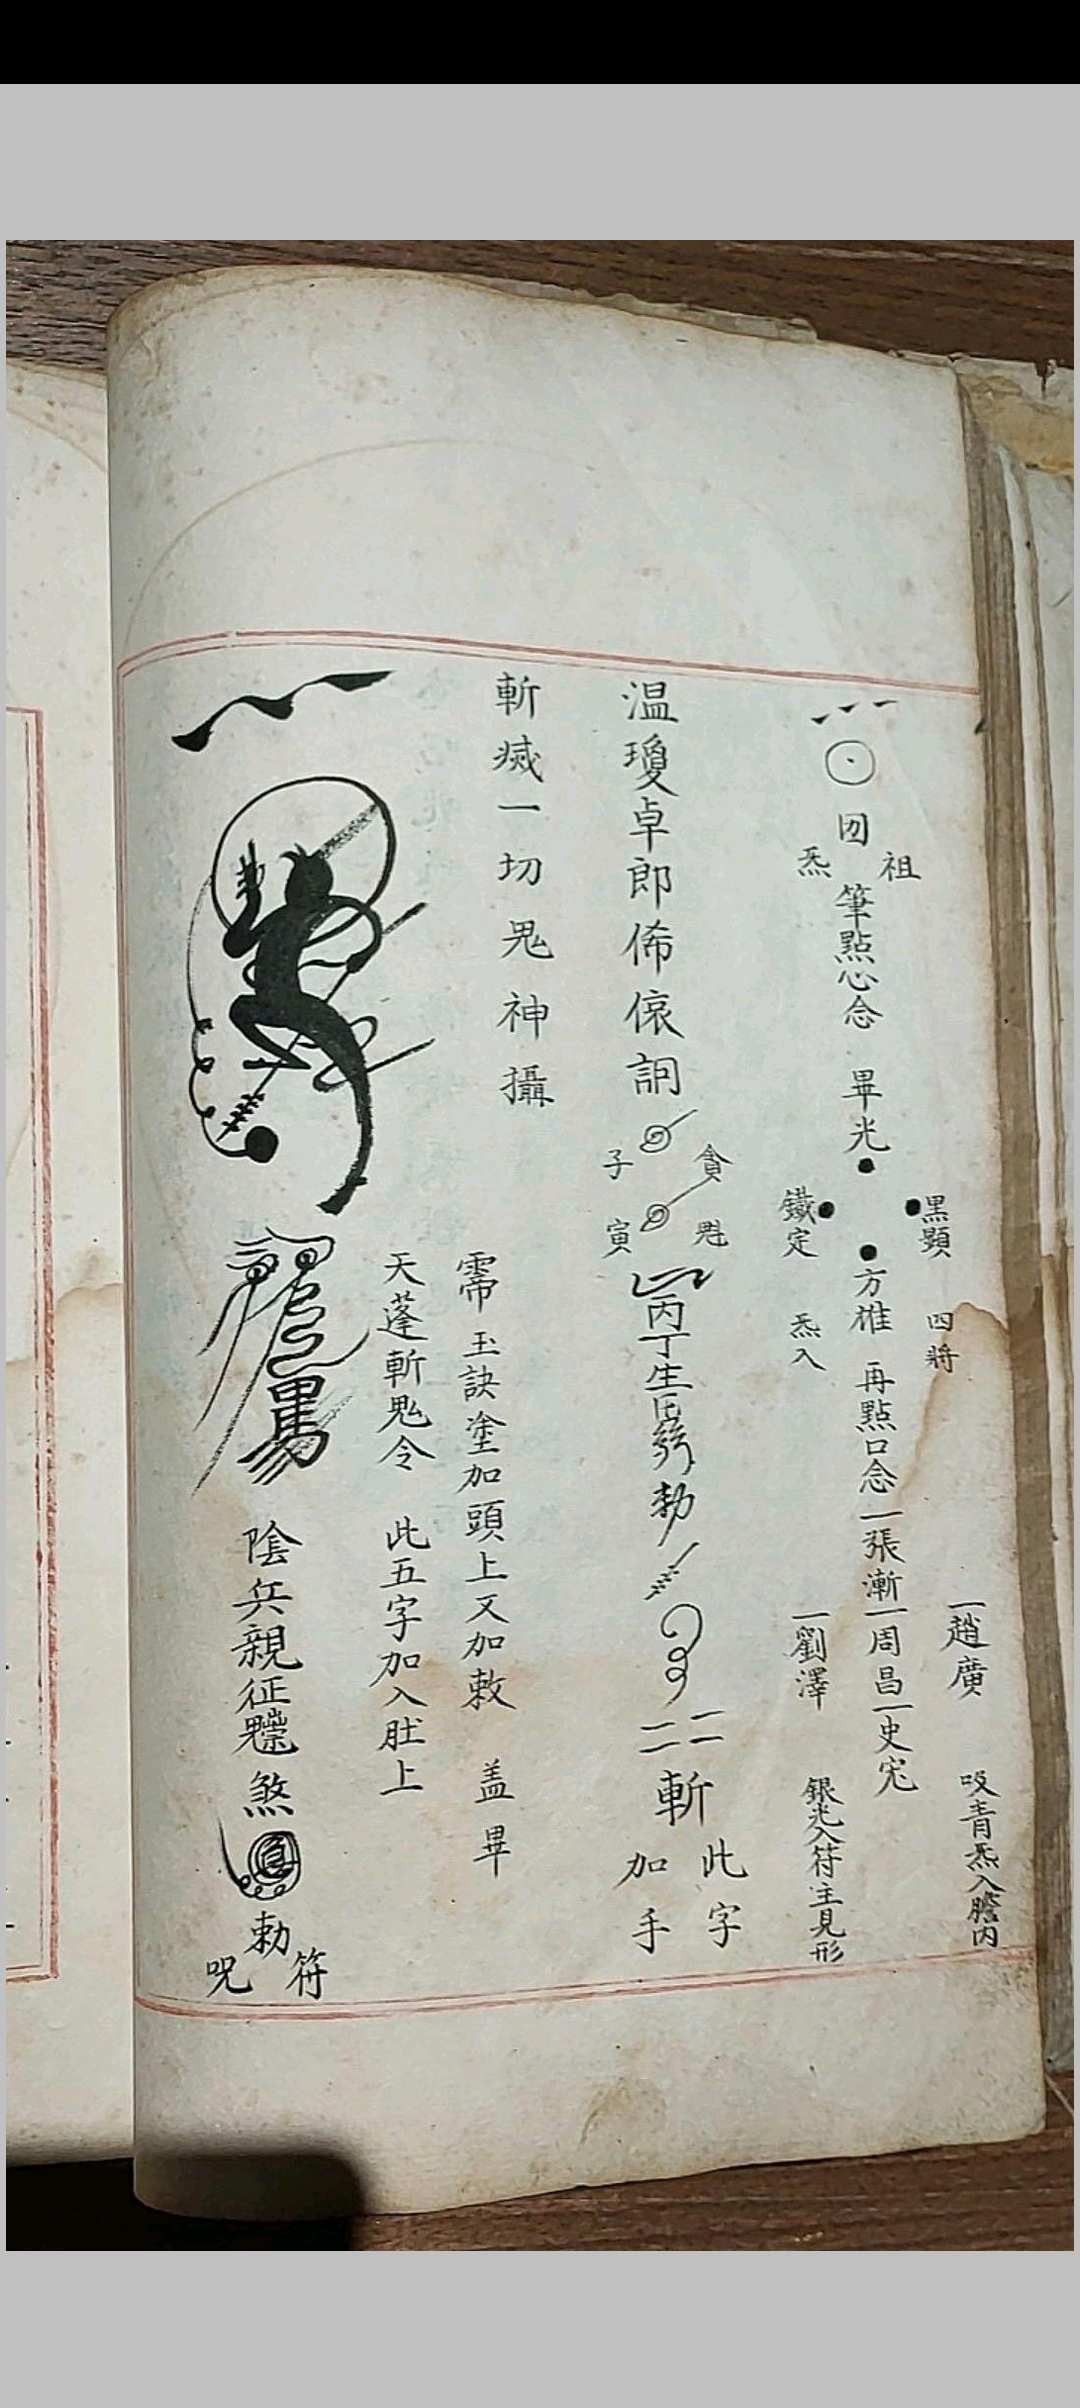 囙
祖
炁
筆點心念
畢光
黑顯
鐵定
方雄
四將
炁入
再點口念
一張漸一周昌一史宄
一趙廣
一劉澤
吸青炁入膽內
銀光入符主見形
温瓊卓郎俙偯詷
貪
子
魁
寅
丙丁生
勅
斬
此字
加手
斬滅一切鬼神攝
霈玉訣塗加頭上又加敕
蓋畢
天蓬斬鬼令
此五字加入肚上
陰兵親征
煞
勅
符
呪